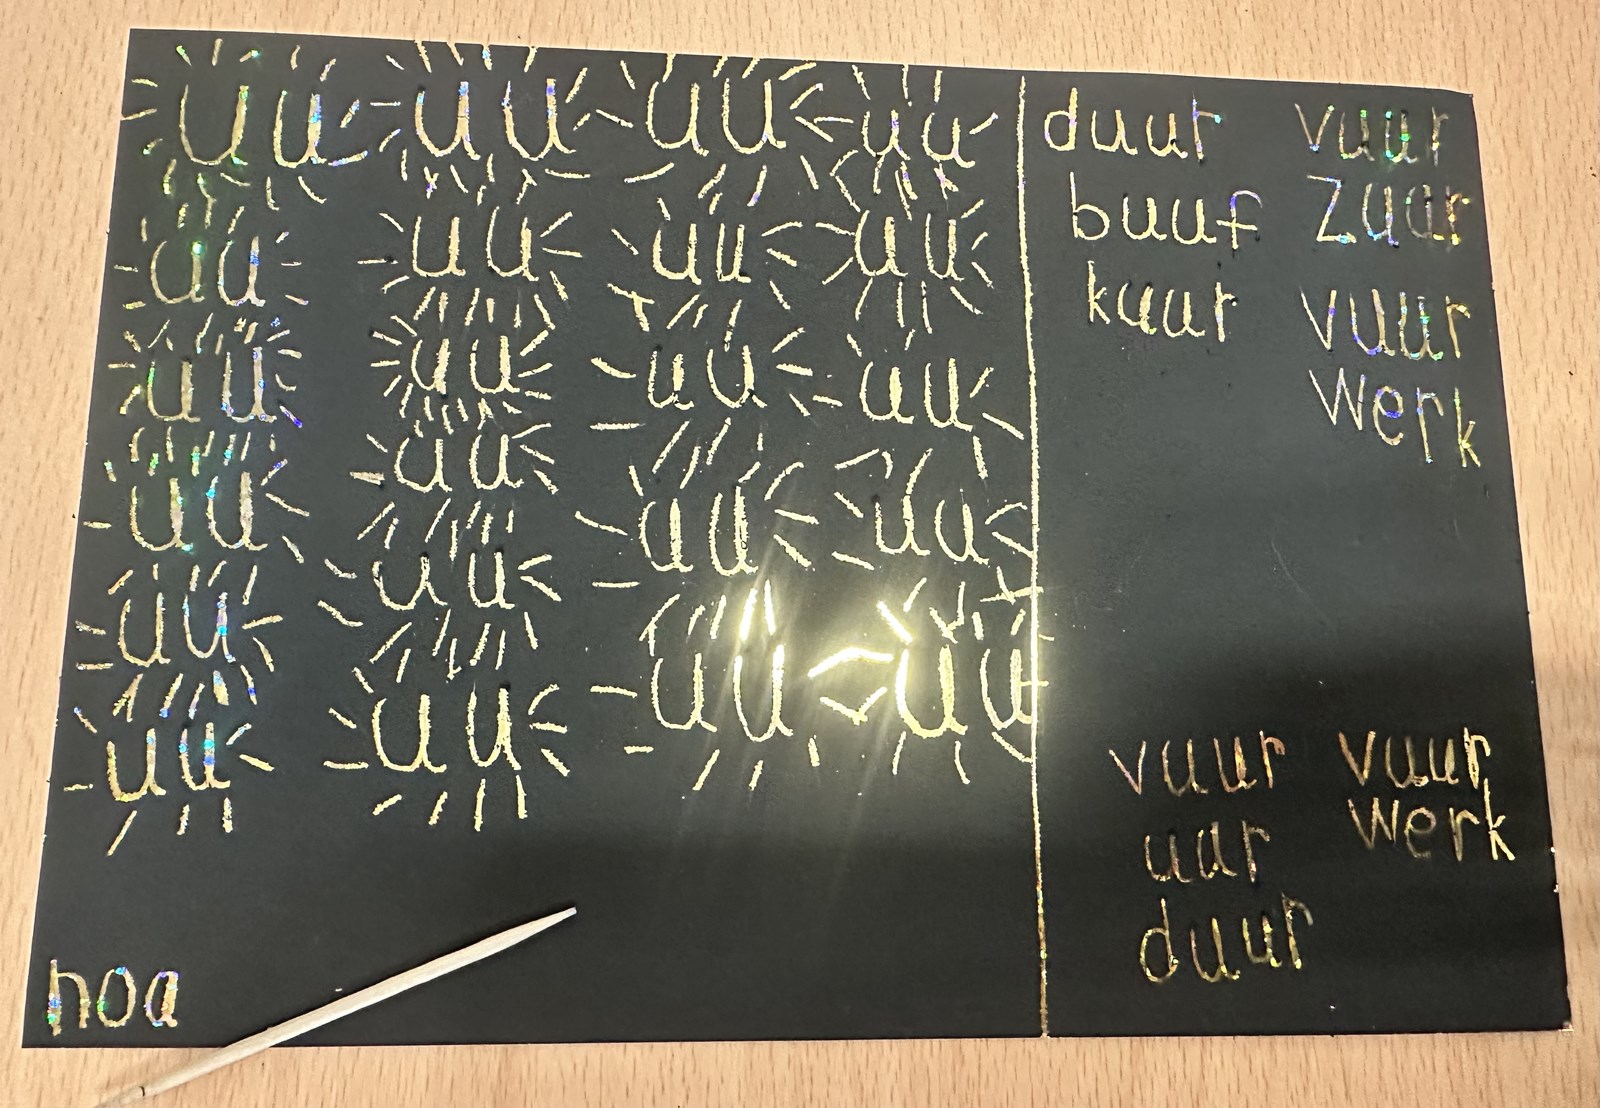 uu uu uu uu
uu uu uu uu
uu uu uu uu
uu uu uu uu
uu uu uu uu
uu uu
duur vuur
buuf zuur
kuur vuur
werk
vuur vuur
uur werk
duur
noa